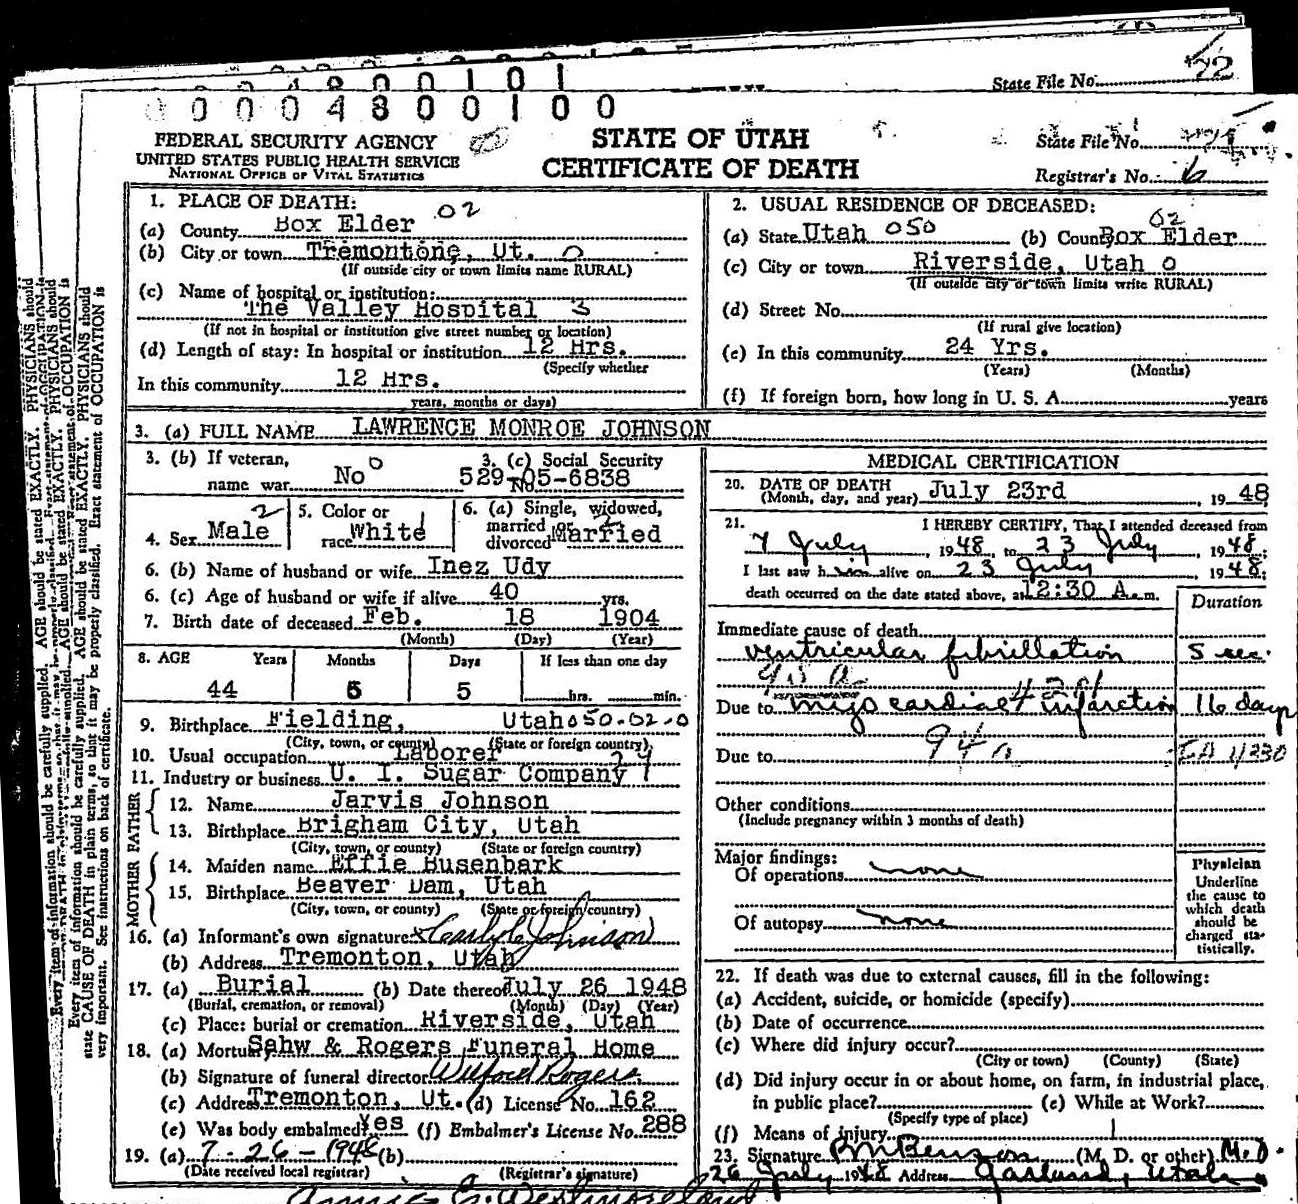 State File No.
0 0 0 4 8 0 0 1 0 1
0 0 0 4 8 0 0 1 0 0
FEDERAL SECURITY AGENCY
UNITED STATES PUBLIC HEALTH SERVICE
NATIONAL OFFICE OF VITAL STATISTICS
STATE OF UTAH
CERTIFICATE OF DEATH
State File No.
Registrar's No. 6
1. PLACE OF DEATH:
(a) County Box Elder 02
(b) City or town Tremontone, Ut. 0
(If outside city or town limits name RURAL)
(c) Name of hospital or institution:
The Valley Hospital 3
(If not in hospital or institution give street number or location)
(d) Length of stay: In hospital or institution 12 Hrs.
(Specify whether
In this community 12 Hrs.
years, months or days)
2. USUAL RESIDENCE OF DECEASED:
(a) State Utah 050 (b) County Box Elder 02
(c) City or town Riverside, Utah 0
(If outside city or town limits write RURAL)
(d) Street No.
(If rural give location)
(e) In this community 24 Yrs.
(Years) (Months)
(f) If foreign born, how long in U. S. A. years
3. (a) FULL NAME LAWRENCE MONROE JOHNSON
3. (b) If veteran, name war No 0
3. (c) Social Security No. 529-05-6838
4. Sex Male 2
5. Color or race White 1
6. (a) Single, widowed, married or divorced Married
6. (b) Name of husband or wife Inez Udy
6. (c) Age of husband or wife if alive 40 yrs.
7. Birth date of deceased Feb. 18 1904
(Month) (Day) (Year)
8. AGE Years Months Days If less than one day
44 5 5 hrs. min.
9. Birthplace Fielding, Utah 050-02-0
(City, town, or county) (State or foreign country)
10. Usual occupation Laborer
11. Industry or business U. I. Sugar Company
FATHER
12. Name Jarvis Johnson
13. Birthplace Brigham City, Utah
(City, town, or county) (State or foreign country)
MOTHER
14. Maiden name Effie Busenbark
15. Birthplace Beaver Dam, Utah
(City, town, or county) (State or foreign country)
16. (a) Informant's own signature x Carlyle Johnson
(b) Address Tremonton, Utah
17. (a) Burial (b) Date thereof July 26 1948
(Burial, cremation, or removal) (Month) (Day) (Year)
(c) Place: burial or cremation Riverside, Utah
18. (a) Mortuary Sahw & Rogers Funeral Home
(b) Signature of funeral director Wilford Rogers
(c) Address Tremonton, Ut. (d) License No. 162
(e) Was body embalmed Yes (f) Embalmer's License No. 288
19. (a) 7-26-1948 (b)
(Date received local registrar) (Registrar's signature)
MEDICAL CERTIFICATION
20. DATE OF DEATH
(Month, day, and year) July 23rd 1948
21. I HEREBY CERTIFY, That I attended deceased from
7 July, 1948, to 23 July, 1948;
I last saw him alive on 23 July 1948;
death occurred on the date stated above, at 12:30 A.m.
Duration
Immediate cause of death
ventricular fibrillation 5 sec.
Due to myocardial infarction 16 days
Due to 94a
Other conditions
(Include pregnancy within 3 months of death)
Major findings:
Of operations none
Of autopsy none
Physician
Underline
the cause to
which death
should be
charged sta-
tistically.
22. If death was due to external causes, fill in the following:
(a) Accident, suicide, or homicide (specify)
(b) Date of occurrence
(c) Where did injury occur?
(City or town) (County) (State)
(d) Did injury occur in or about home, on farm, in industrial place,
in public place? (e) While at Work?
(Specify type of place)
(f) Means of injury
23. Signature (M. D. or other) M.D.
26 July 1948 Address Garland, Utah
Every item of information should be carefully supplied. AGE should be stated EXACTLY. PHYSICIANS should
state CAUSE OF DEATH in plain terms, so that it may be properly classified. Exact statement of OCCUPATION is
very important. See instructions on back of certificate.